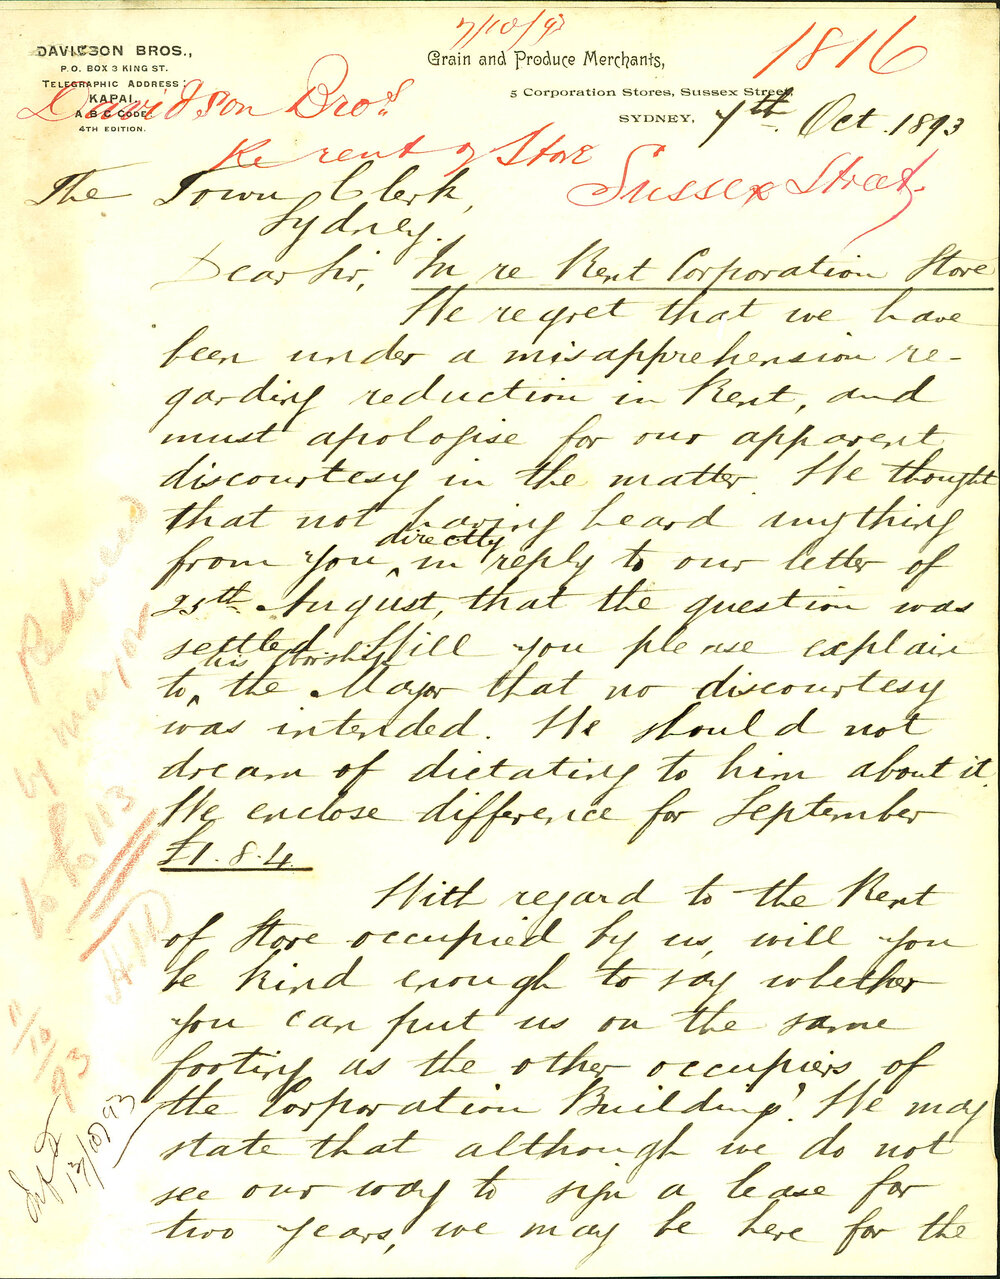 7/10/93
1816
DAVIDSON BROS.,
P.O. BOX 3 KING ST.
TELEGRAPHIC ADDRESS:
KAPAI.
A B C CODE
4TH EDITION.
Grain and Produce Merchants,
5 Corporation Stores, Sussex Street,
SYDNEY, 7th Oct. 1893
Davidson Bros
Re rent of Store
Sussex Street.
The Town Clerk,
Sydney.
Dear Sir, In re Rent Corporation Store
We regret that we have
been under a misapprehension re-
garding reduction in Rent, and
must apologise for our apparent
discourtesy in the matter. We thought
that not having heard anything
from you directly in reply to our letter of
25th August, that the question was
settled. Will you please explain
to his Worship the Mayor that no discourtesy
was intended. We should not
dream of dictating to him about it.
We enclose difference for September
£1.8.4.
With regard to the Rent
of Store occupied by us, will you
be kind enough to say whether
you can put us on the same
footing as the other occupiers of
the Corporation Building? We may
state that although we do not
see our way to sign a lease for
two years, we may be here for the
Reduced
by mayor
to £113
11/10/93
13/10/93